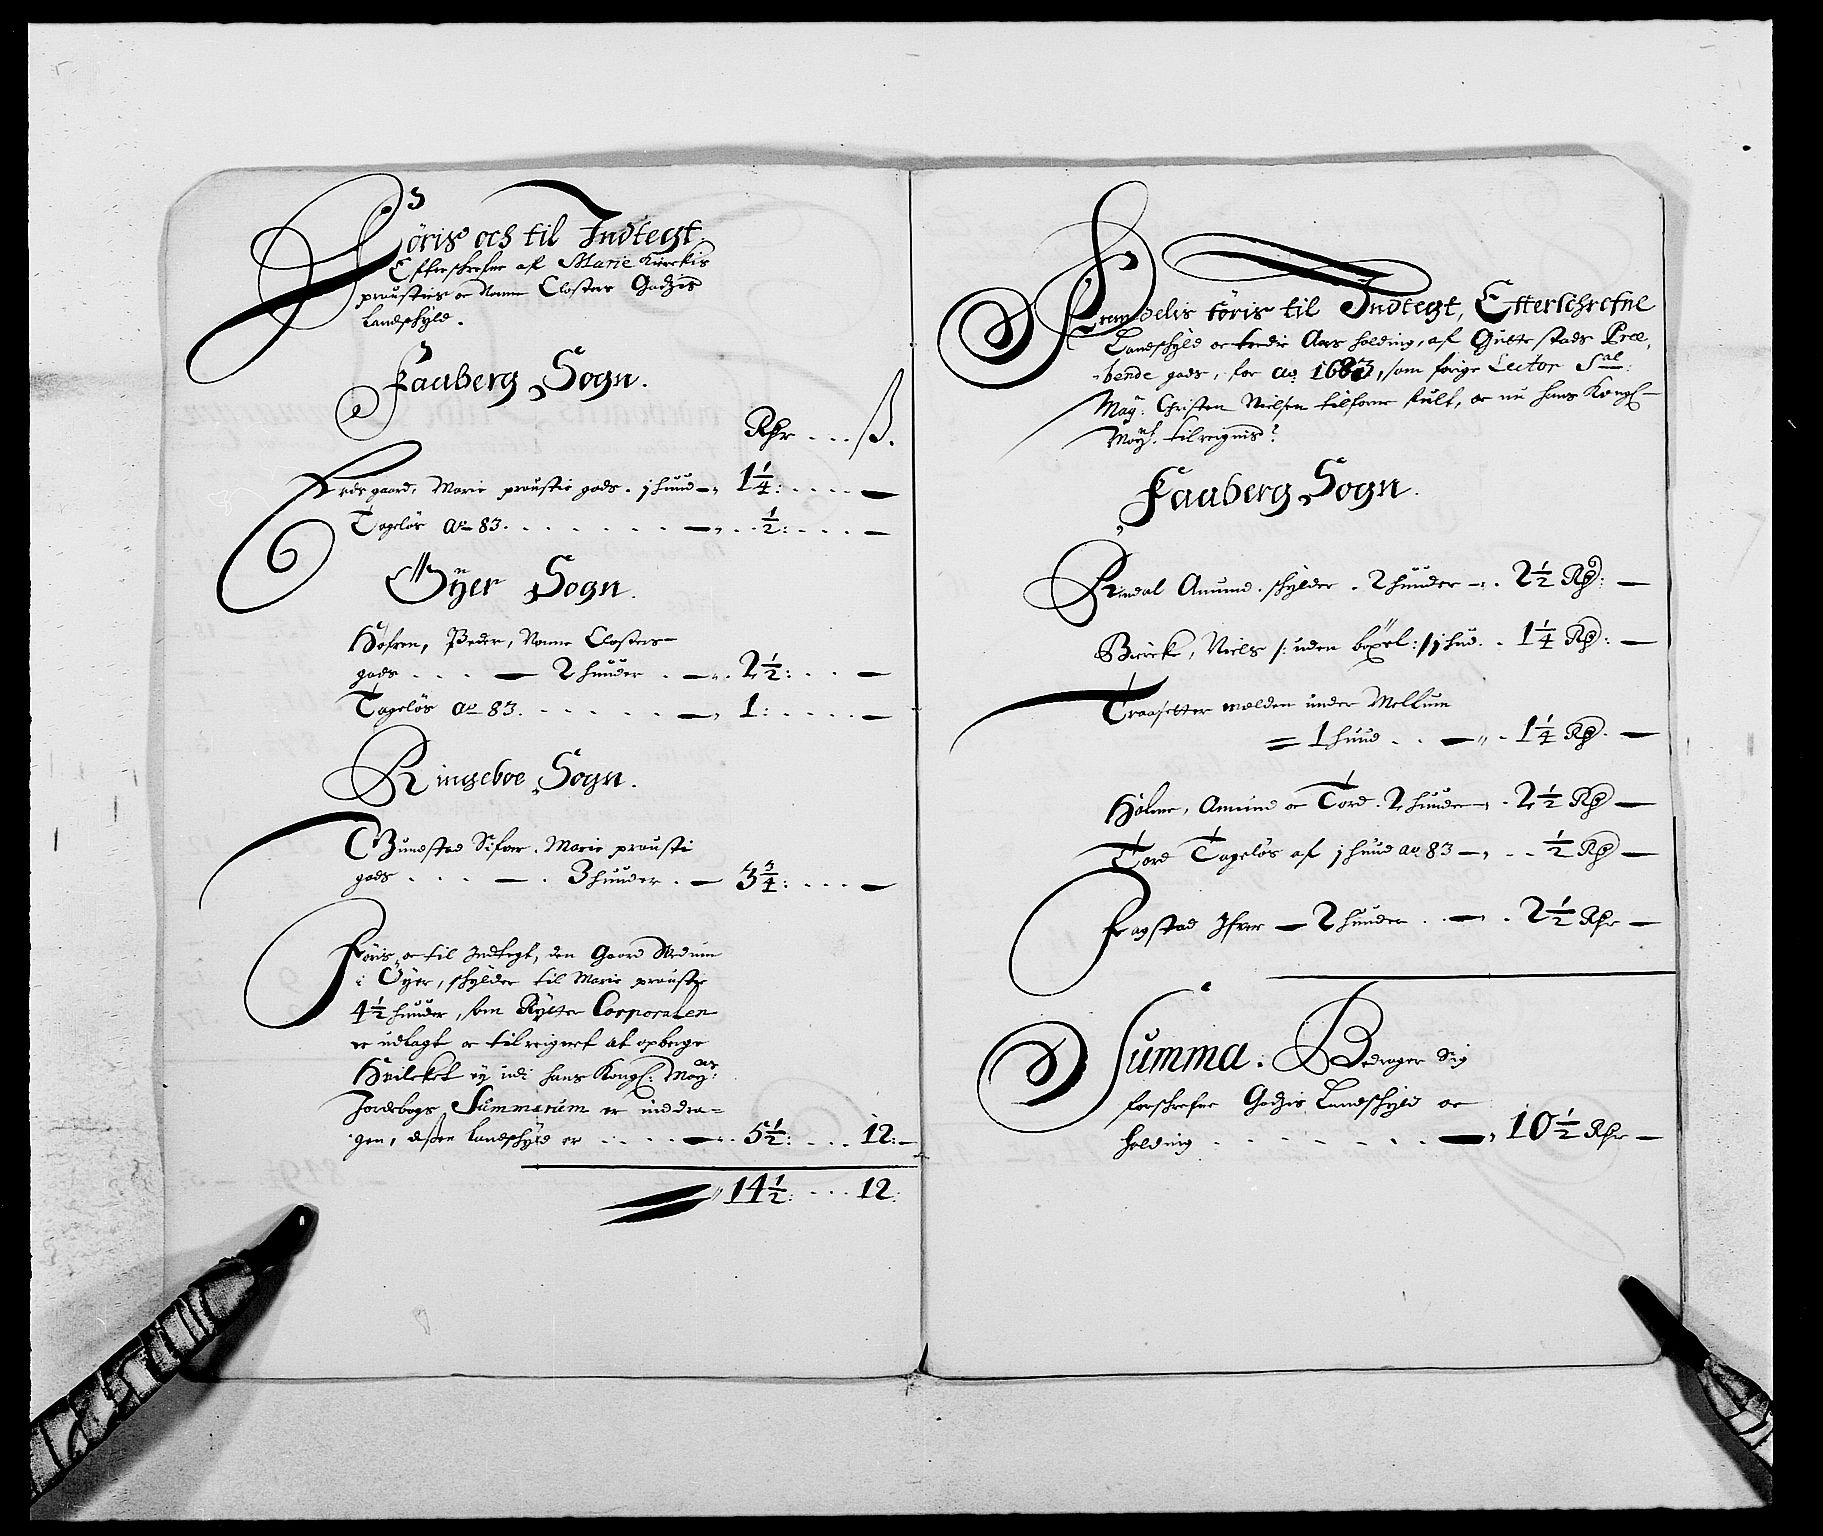 Föris och til Indtegt
Effterschrefne af Marie Kirckis
prousties oc Nonne Closter Godzis
Landschyld.
Faaberg Sogn.
Rdr . . . ß.
gaard, Marie proustie gods. j huud — 1¼: . . . . —
Tageløs ao 83. . . . . . . — . . ½: . . . . —
Öÿer Sogn.
Peder, Nonne Closters
gods . . . — 2 huuder . — . 2½: . . . —
Tageløs ao 83. . . . . . — 1: . . . . —
Ringeboe Sogn.
Gundstad Sifver. Marie prousti
gods . . . — . 3 huuder . — 3¾: . . . —
Föris oc til Indtegt, den Gaard
i Öÿer, schylder til Marie proustie
4½ huuder, som Rytter Corporalen
er udlagt oc tilreignet at opberge
Hvilcket ej udi hans Kongl: May:
Jordebogs Summarum er inddra=
gen, dessen Landschyld er . . . . — . 5½: . . . 12: —
14½: . . . 12:
Fremdelis föris til Indtegt, Efterschrefne
Landschyld oc tredie Aars holding, af Gulbestads Præ=
bende gods, for ao 1683, som forige Lector Sal:
Mag: Christen Nielsen tilforne fult, oc nu hans Kongl
May. tilreignis
Faaberg Sogn.
Rindal Amund. schylder . 2 huuder — . 2½ Rd: —
Bircke, Niels /: uden böxel :/ j hud . . 1¼ Rd: —
under Mellum
= 1 huud . . — . 1¼ Rd. —
Holme, Amund oc Tord. 2 huuder — . 2½ Rd —
Tord Tageløs af j huud ao 83 — . . ½ Rd —
Fagstad Ifver — 2 huuder . . — . 2½ Rdr —
Summa. Bedrager Sig
forschrefne Godzis Landschyld oc
holding . . . . . . . — 10½ Rdr —